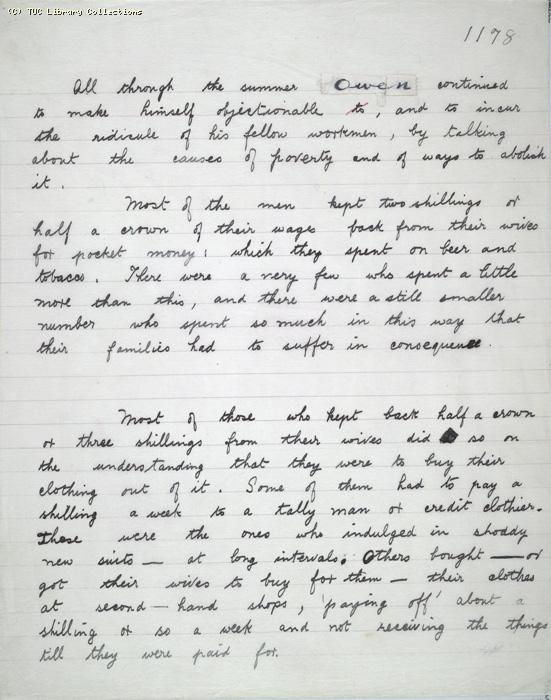 (C) TUC Library Collections
1178
All through the summer Owen continued
to make himself objectionable to, and to incur
the ridicule of his fellow workmen, by talking
about the causes of poverty and of ways to abolish
it.
Most of the men kept two shillings or
half a crown of their wages back from their wives
for pocket money: which they spent on beer and
tobacco. There were a very few who spent a little
more than this, and there were a still smaller
number who spent so much in this way that
their families had to suffer in consequence.
Most of those who kept back half a crown
or three shillings from their wives did so on
the understanding that they were to buy their
clothing out of it. Some of them had to pay a
shilling a week to a tally man or credit clothier.
These were the ones who indulged in shoddy
new suits — at long intervals. Others bought — or
got their wives to buy for them — their clothes
at second-hand shops, 'paying off' about a
shilling or so a week and not receiving the things
till they were paid for.